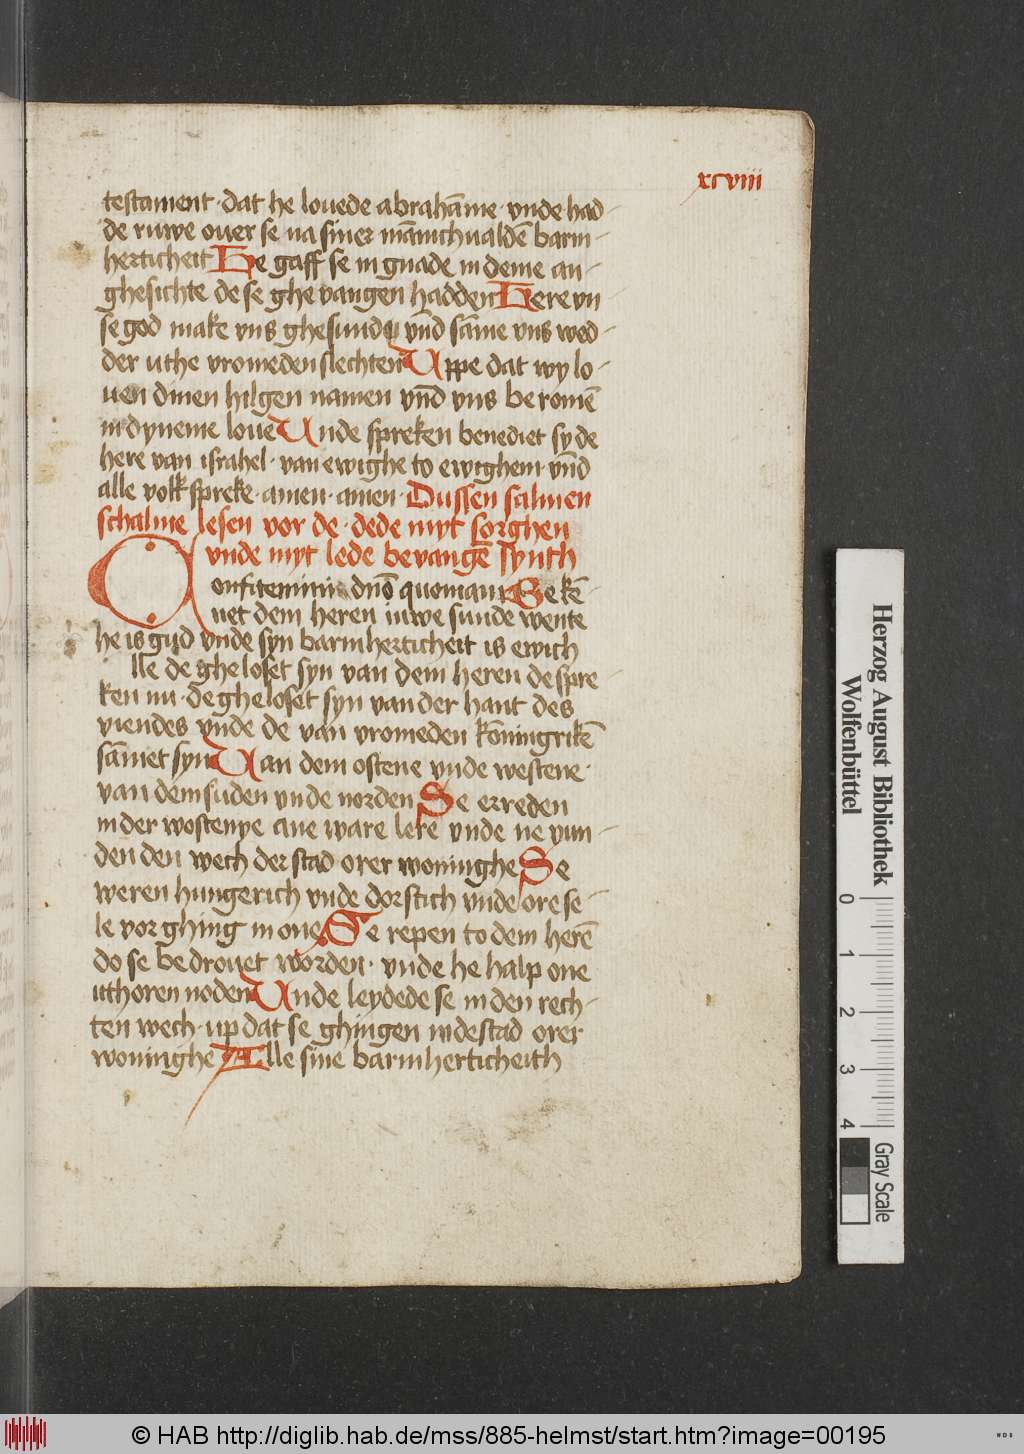 xcviii
testament · dat he louede abrahāme · vnde had-
de ruwe ouer se na siner mānichualdē barm-
herticheit He gaff se in gnade in deme an-
ghesichte de se ghe vangen hadden Here vn-
se god make vns ghesund vn̄d sāme vns wed-
der uthe vromeden slechten Uppe dat wy lo-
uen dinen hilgen namen vn̄d vns be romē
in dyneme loue Unde spreken benediet sy de
here van israhel · van ewighe to ewighem · vn̄d
alle volk spreke · amen · amen · Dussen salmen
schalme lesen vor de · dede myt sorghen
vnde myt lede bevangē synth
Confitemini dn̄o quoniam Be kē-
net dem heren iuwe sunde wente
he is gud vnde syn barmherticheit is ewich
lle de ghe loset syn van dem heren de spre-
ken nu · de ghe loset syn van der hant des
viendes vnde de van vromeden kōningrikē
sāmet syn Uan dem ostene vnde westene ·
van dem suden vnde norden Se erreden
in der wostenye ane ware lere vnde ne vun-
den den wech der stad orer woninghe Se
weren hungerich vnde dorstich vnde ore se-
le vor ghing in one Se repen to dem herē
do se be drouet worden · vnde he halp one
uth oren noden Unde leydede se in den rech-
ten wech · up dat se ghingen in de stad orer
woninghe Alle sine barmherticheith
Herzog August Bibliothek
Wolfenbüttel
0 1 2 3 4
Gray Scale
© HAB http://diglib.hab.de/mss/885-helmst/start.htm?image=00195